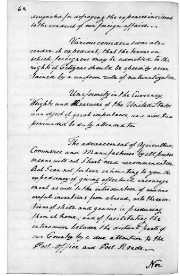 designated for defraying the expenses incident
to the conduct of our foreign affairs.
Various considerations also
render it expedient, that the terms on
which foreigners may be admitted to the
rights of Citizens should be speedily ascer-
tained by a uniform rule of naturalization.
Uniformity in the Currency,
Weights and Measures of the United States
is an object of great importance, and will I am
persuaded be duly attended to.
The advancement of Agriculture,
Commerce and Manufactures by all proper
means, will not I trust need recommendation.
But I cannot forbear intimating to you the
expediency of giving effectual encourage-
ment as well to the introduction of new and
useful inventions from abroad, as to the exer-
tions of skill and genius in producing
them at home; and of facilitating the
intercourse between the distant parts of
our Country by a due attention to the
Post-Office and Post Roads.
Nor